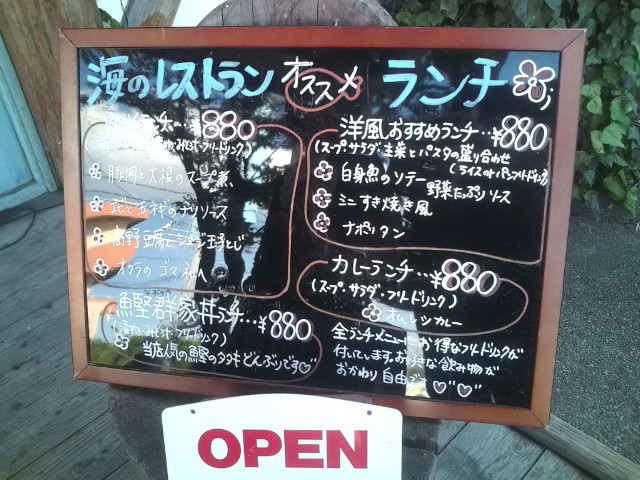 海のレストラン オススメ ランチ
ランチ…¥880
(漬物・みそ汁・フリードリンク)
豚肉と大根のスープ煮
ナンソース
高野豆腐と玉子とじ
オクラのゴマ和へ
鰹群家丼ランチ…¥880
(漬物・みそ汁・フリードリンク)
当店人気の鰹のタタキどんぶりです♡
洋風おすすめランチ…¥880
(スープ サラダ 主菜とパスタの盛り合わせ
(ライスorパン フリードリンク)
白身魚のソテー
野菜たっぷりソース
ミニすき焼き風
ナポリタン
カレーランチ…¥880
(スープ・サラダ・フリードリンク)
オムレツカレー
全ランチメニューにお得なフリードリンクが
付いています。お好きな飲み物が
おかわり自由です♡♡
OPEN